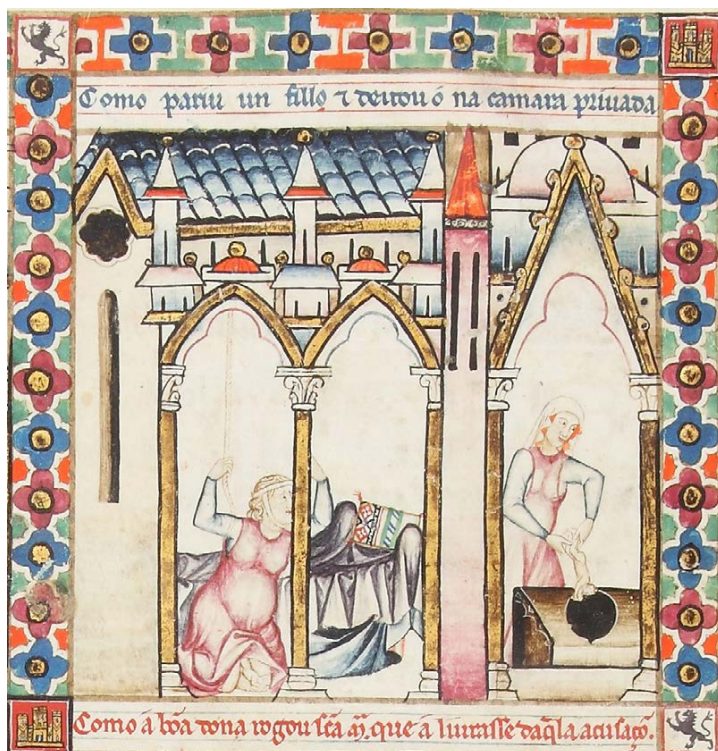 Como pariu un fillo ⁊ deitou ó na camara priuada
Como á bõa dona rogou sc̃a m̃. que á liurasse daq̃la acusaçõ.